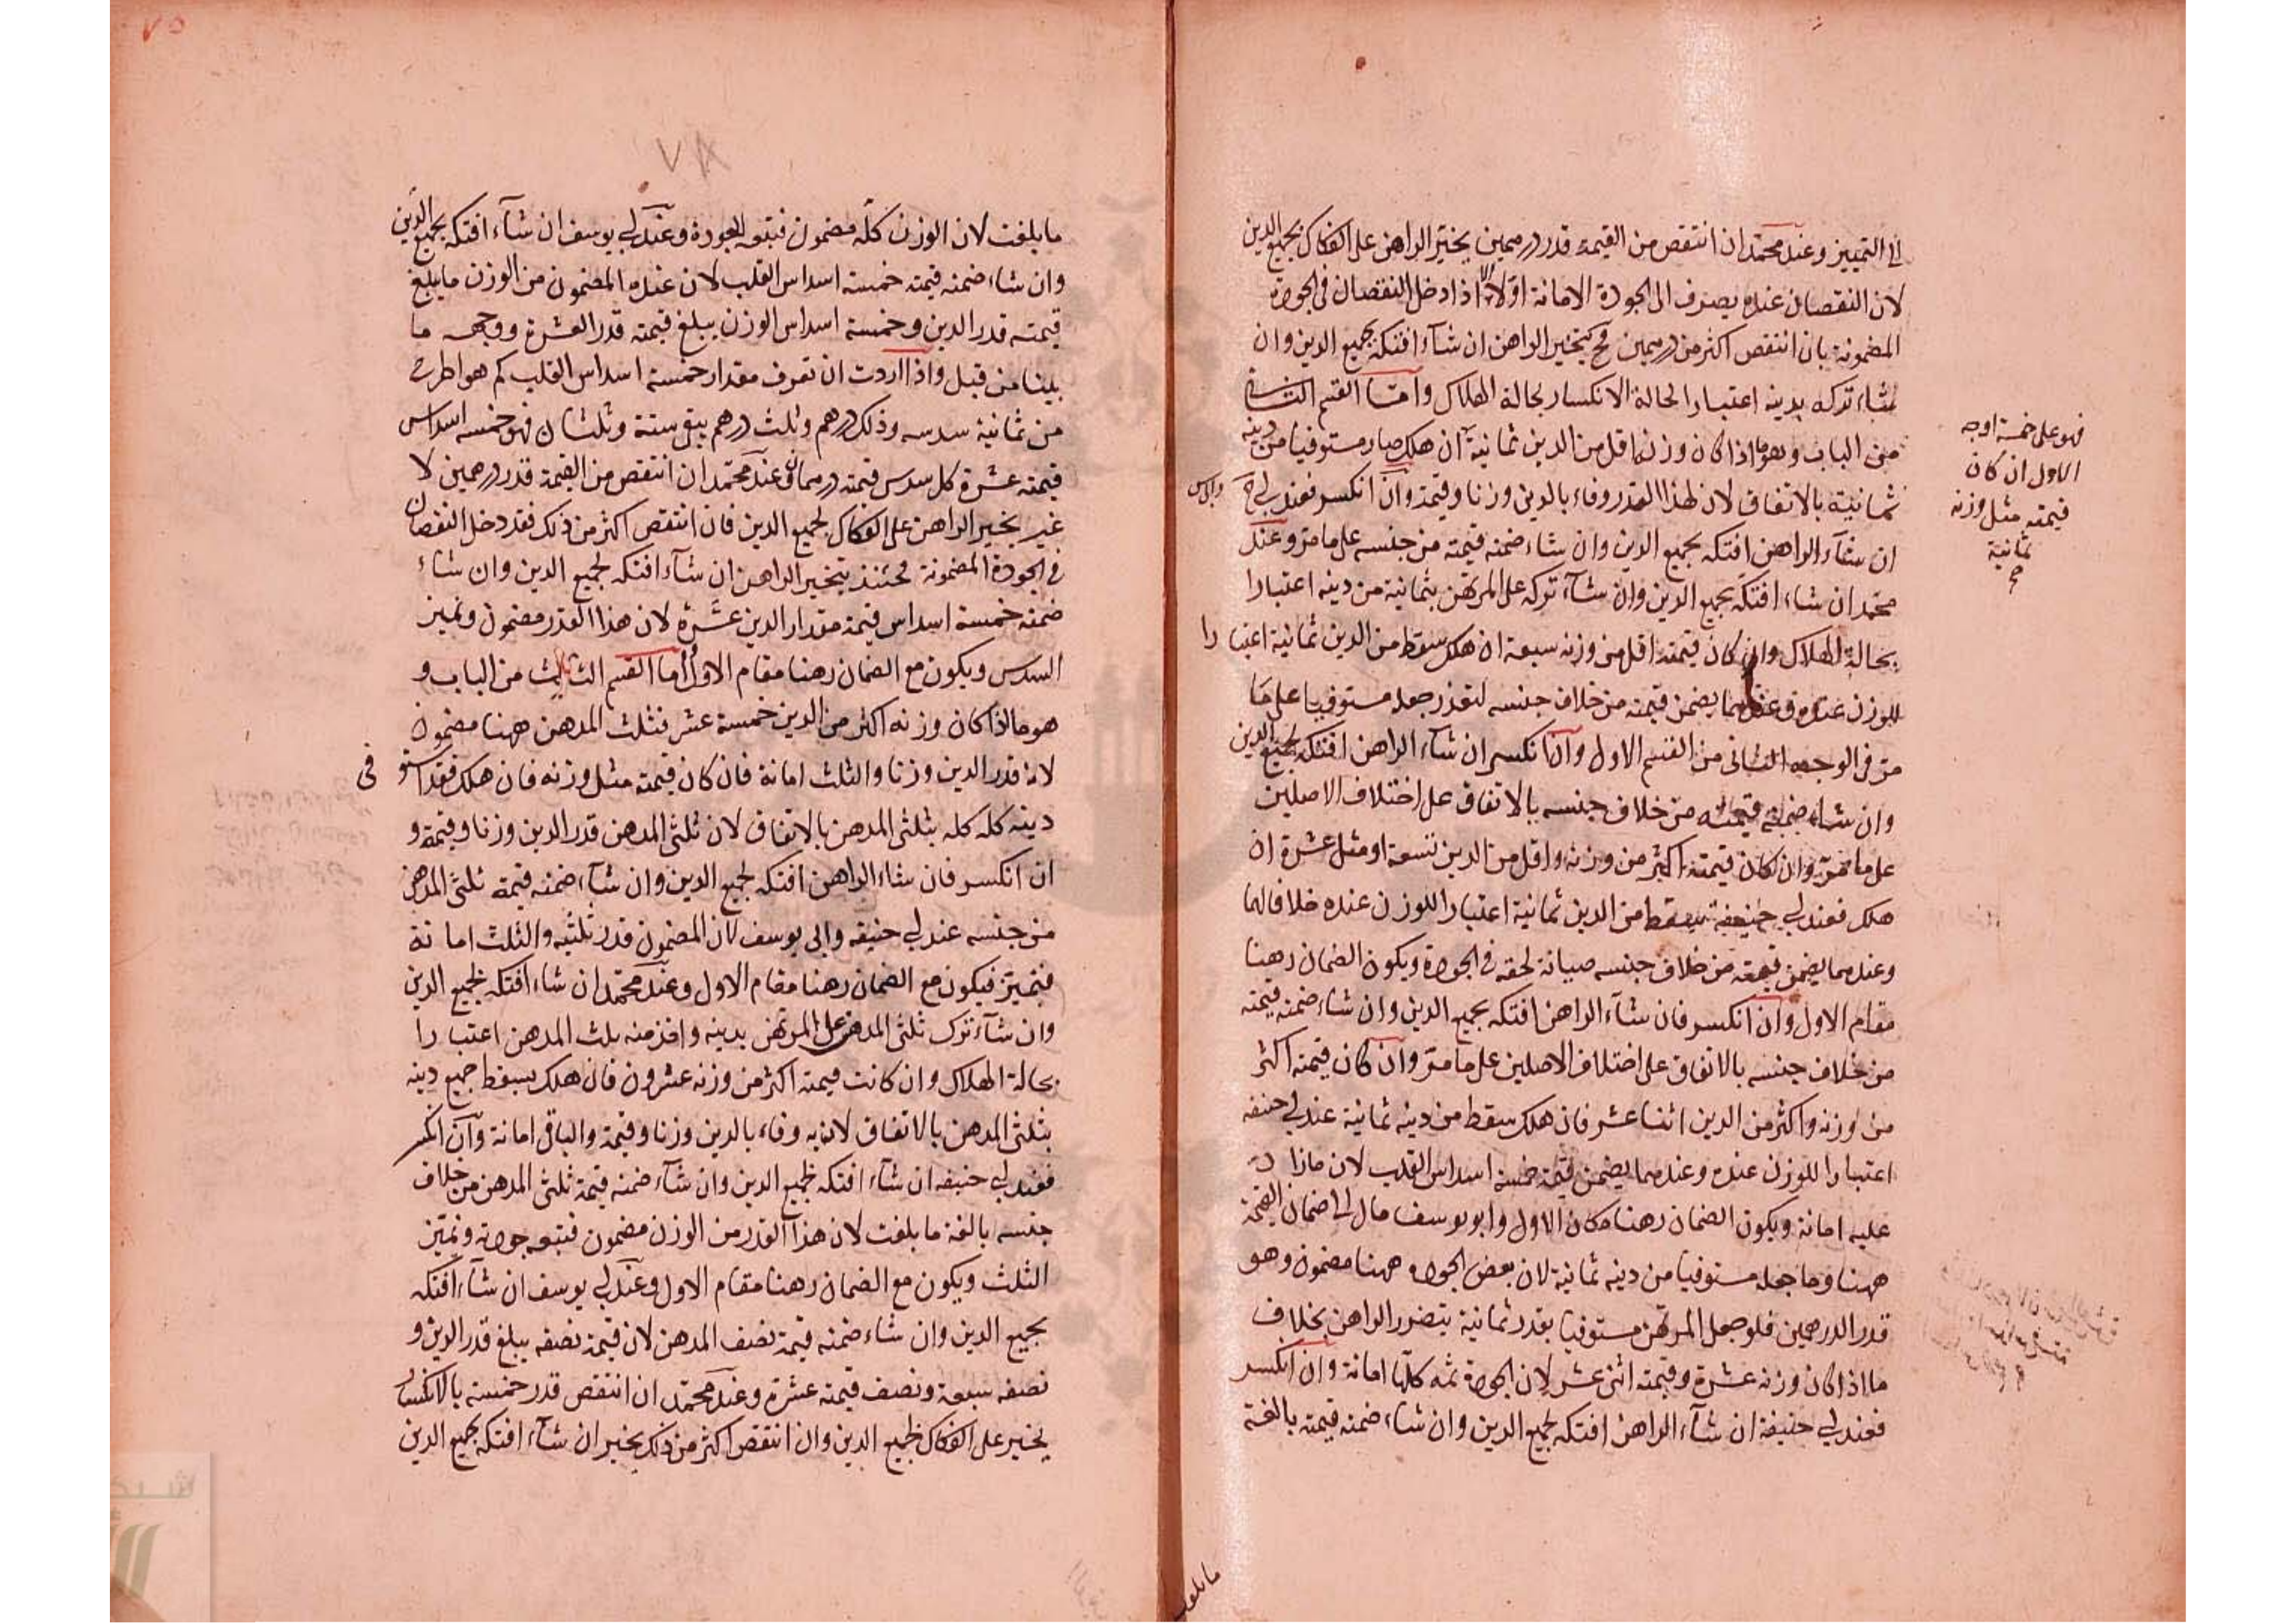 الى التمييز وعند محمد ان انتقص من القيمة قدر درهمين يخير الراهن على الفكاك بجميع الدين
لان النقصان عنده يصرف الى الجودة الامانة اولا الا اذا دخل النقصان فى الجودة
المضمونة بان انتقص اكثر من درهمين فح يتخير الراهن ان شآء افتكه بجميع الدين وان
شاء تركه بدينه اعتبارا لحالة الانكسار بحالة الهلاك واما القسم الثانى
من الباب وهو ما اذا كان وزنه اقل من الدين ثمانية ان هلك صار مستوفيا من دينه
ثمانية بالاتفاق لان لهذا القدر وفاء بالدين وزنا وقيمة وان انكسر فعند ابى ح
ان شآء الراهن افتكه بجميع الدين وان شاء ضمنه قيمته من جنسه على ما مر وعند
محمد ان شاء افتكه بجميع الدين وان شآء تركه على المرتهن بثمانية من دينه اعتبارا
بحالة الهلاك وان كان قيمته اقل من وزنه سبعة ان هلك سقط من الدين ثمانية اعتبارا
للوزن عنده وعندهما يضمن قيمته من خلاف جنسه لتعذر جعله مستوفيا على ما
مر فى الوجه الثانى من القسم الاول وان انكسر ان شآء الراهن افتكه بجميع الدين
وان شاء ضمنه قيمته من خلاف جنسه بالاتفاق على اختلاف الاصلين
على ما مر وان كان قيمته اكثر من وزنه واقل من الدين تسعة او مثل عشرة ان
هلك فعند ابى حنيفة يسقط من الدين ثمانية اعتبارا للوزن عنده خلافا لهما
وعندهما يضمن قيمته من خلاف جنسه صيانة لحقه فى الجودة ويكون الضمان رهنا
مقام الاول وان انكسر فان شآء الراهن افتكه بجميع الدين وان شاء ضمنه قيمته
من خلاف جنسه بالاتفاق على اختلاف الاصلين على ما مر وان كان قيمته اكثر
من وزنه واكثر من الدين اثنا عشر فان هلك سقط من دينه ثمانية عند ابى حنيفه
اعتبارا للوزن عنده وعندهما يضمن قيمة خمسة اسداس القلب لان ما زاد
عليه امانة ويكون الضمان رهنا مكان الاول وابو يوسف مال الى ضمان القيمة
ههنا وما جعله مستوفيا من دينه ثمانية لان بعض الجوده ههنا مضمون وهو
قدر الدرهمين فلو جعل المرتهن مستوفيا بقدر ثمانية يتضرر الراهن بخلاف
ما اذا كان وزنه عشرة وقيمته اثنى عشر لان الجودة ثمه كلها امانة وان انكسر
فعند ابى حنيفة ان شآء الراهن افتكه بجميع الدين وان شاء ضمنه قيمته بالغة
فهو على خمسة اوجه
الاول ان كان
قيمته مثل وزنه
ثمانية
ما بلغت
٧٥
٧٨
ما بلغت لان الوزن كله مضمون فيتبعه الجودة وعند ابى يوسف ان شآء افتكه بجميع الدين
وان شاء ضمنه قيمته خمسة اسداس القلب لان عنده المضمون من الوزن ما يبلغ
قيمته قدر الدين وخمسة اسداس الوزن يبلغ قيمته قدر العشرة ووجهه ما
بينا من قبل واذا اردت ان تعرف مقدار خمسة اسداس القلب كم هو اطرح
من ثمانية سدسه وذلك درهم وثلث درهم يبقى ستة وثلثان فهو خمسه اسداس
قيمته عشرة كل سدس قيمته درهمان وعند محمد ان انتقص من القيمة قدر درهمين لا
غير يخير الراهن على الفكاك بجميع الدين فان انتقص اكثر من ذلك فقد دخل النقصان
فى الجودة المضمونة فحئنذ يتخير الراهن ان شآء افتكه بجميع الدين وان شاء
ضمنه خمسة اسداس قيمته مقدار الدين عشره لان هذا القدر مضمون ونميز
السدس ويكون مع الضمان رهنا مقام الاول واما القسم الثالث من الباب و
هو ما اذا كان وزنه اكثر من الدين خمسة عشر فثلث المدهن ههنا مضمون
لانه قدر الدين وزنا والثلث امانة فان كان قيمته مثل وزنه فان هلك فقد استوفى
دينه كله كله بثلثى المدهن بالاتفاق لان ثلثى المدهن قدر الدين وزنا وقيمة و
ان انكسر فان شاء الراهن افتكه بجميع الدين وان شآء ضمنه قيمة ثلثى المدهن
من جنسه عند ابى حنيفه وابى يوسف لان المضمون قدر ثلثيه والثلث امانة
فتميز فيكون مع الضمان رهنا مقام الاول وعند محمد ان شاء افتكه بجميع الدين
وان شآء ترك ثلثى المدهن على المرتهن بدينه واخذ منه ثلث المدهن اعتبارا
بحالة الهلاك وان كانت قيمته اكثر من وزنه عشرون فان هلك يسقط جميع دينه
بثلثى المدهن بالاتفاق لان به وفاء بالدين وزنا وقيمة والباقى امانة وان انكسر
فعند ابى حنيفه ان شآء افتكه بجميع الدين وان شآء ضمنه قيمة ثلثى المدهن من خلاف
جنسه بالغة ما بلغت لان هذا القدر من الوزن مضمون فتتبعه جودته ونميز
الثلث ويكون مع الضمان رهنا مقام الاول وعند ابى يوسف ان شآء افتكه
بجميع الدين وان شاء ضمنه قيمة نصف المدهن لان قيمة نصفه يبلغ قدر الدين و
نصفه سبعة ونصف قيمته عشرة وعند محمد ان انتقص قدر خمسة بالانكسار
يخير على الفكاك بجميع الدين وان انتقص اكثر من ذلك يخير ان شآء افتكه بجميع الدين